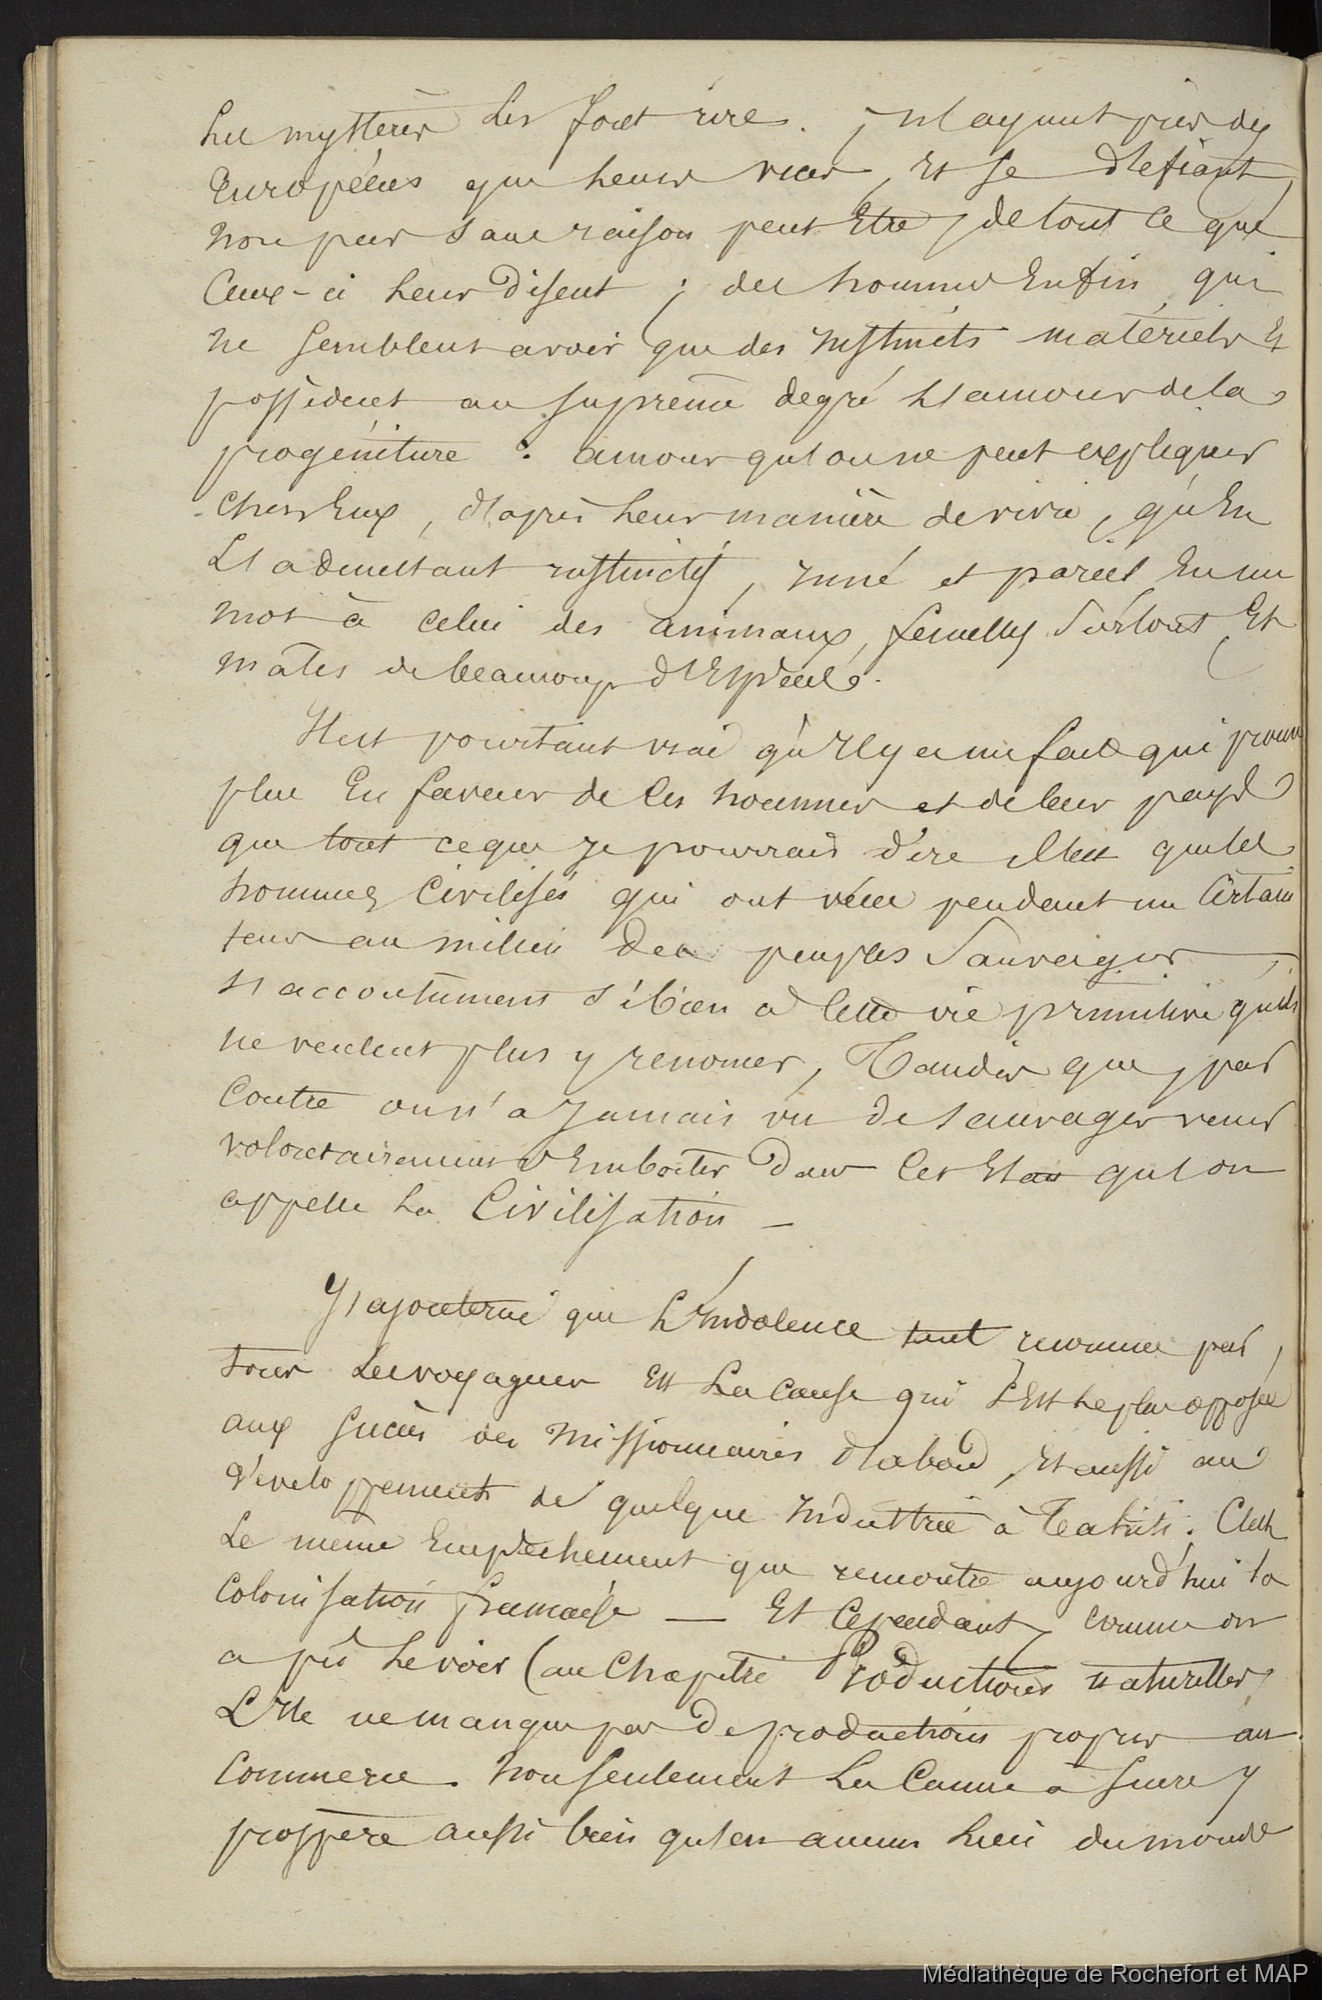 Les mystères les font rire. ; n'ayant pris des
Européens que leurs vices, et se défiant,
non pas sans raison peut être, de tout ce que
Ceux-ci leur disent ; des hommes enfin, qui
ne semblent avoir que des instincts matériels et
possèdent au suprême degré l'amour de la
progéniture : amour qu'on ne peut expliquer
chez eux, d'après leur manière de vivre, qu'en
l'admettant instinctif, inné et pareil en un
mot à celui des animaux, femelles surtout et
mâles de beaucoup d'espèces.
Il est pourtant vrai qu'il y a un fait qui prouve
plus en faveur de ces hommes et de leur pays
que tout ce que je pourrais dire il est que les
hommes civilisés qui ont vécu pendant un certain
tems au milieu des peuples sauvages
s'accoutument si bien à cette vie primitive qu'ils
ne veulent plus y renoncer, Tandis que, par
contre on n'a jamais vu de sauvages venir
volontairement s'emboiter dans cet état qu'on
appelle la Civilisation —
J'ajouterai que l'indolence tant reconnue par,
tous les voyageurs est la cause qui s'est le plus opposée
aux succès des Missionnaires d'abord, et aussi au
développement de quelque industrie à Teahiti. C'est
le même empêchement que rencontre aujourd'hui la
colonisation française — Et cependant, comme on
a pû le voir (au Chapître Productions naturelles,
L'Ile ne manque pas de productions propres au
commerce. Non seulement la Canne à sucre y
prospère aussi bien qu'en aucun lieu du monde
Médiathèque de Rochefort et MAP